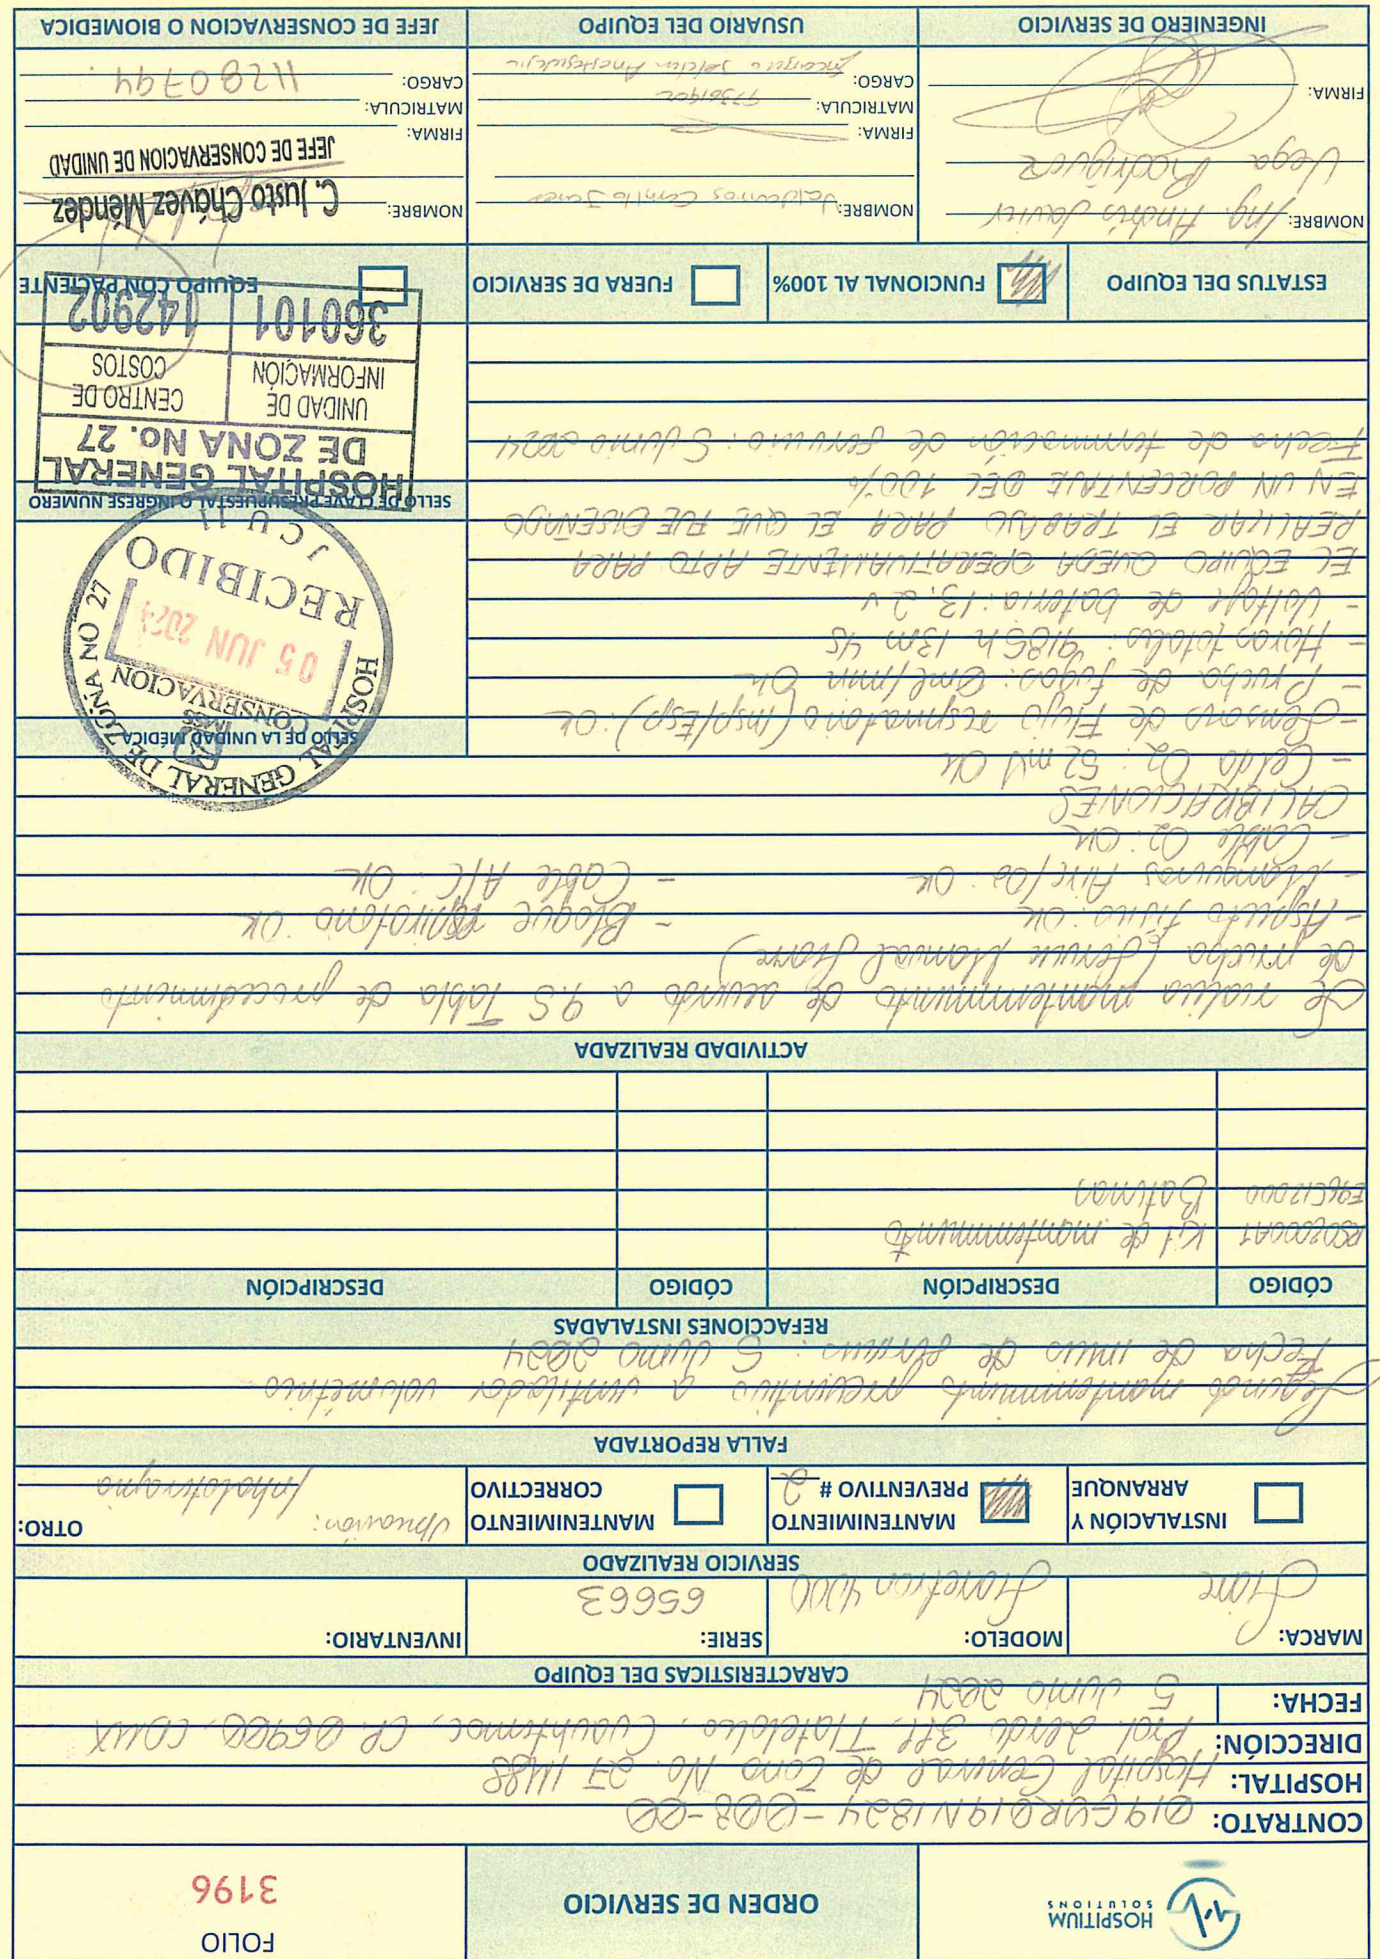 HOSPITIUM
SOLUTIONS
ORDEN DE SERVICIO
FOLIO
3196
CONTRATO: 019GYR019N1824-008-00
HOSPITAL: Hospital General de Zona No. 27 IMSS
DIRECCIÓN: Prol Lerdo 311, Tlatelolco, Cuauhtemoc, CP. 06900, CDMX
FECHA: 5 Junio 2024
CARACTERISTICAS DEL EQUIPO
MARCA: MODELO: SERIE: INVENTARIO:
Siare Siaretron 4000 65663
SERVICIO REALIZADO
INSTALACIÓN Y ARRANQUE
MANTENIMIENTO PREVENTIVO # 2
MANTENIMIENTO CORRECTIVO
OTRO:
Ubicación: Inhaloterapia
FALLA REPORTADA
Segundo mantenimiento preventivo a ventilador volumétrico
Fecha de inicio de servicio: 5 Junio 2024
REFACCIONES INSTALADAS
CÓDIGO DESCRIPCIÓN CÓDIGO DESCRIPCIÓN
Kit de mantenimiento
Baterias
ACTIVIDAD REALIZADA
Se realizo mantenimiento de acuerdo a 9.5 Tabla de procedimiento
de prueba (Service Manual Siare)
- Aspecto fisico: OK - Bloque espiratorio: OK
- Mangueras Aire/O2: OK - Cable A/C: OK
- Cable O2: OK
CALIBRACIONES
- Celda O2: 52 mV OK
- Sensores de Flujo respiratorio (Insp/Esp): OK
- Prueba de fugas: 0ml/min OK
- Horas totales: 9185h 13m 4s
- Voltaje de bateria: 13.2 v
EL EQUIPO QUEDA OPERATIVAMENTE APTO PARA
REALIZAR EL TRABAJO PARA EL QUE FUE DISEÑADO
EN UN PORCENTAJE DEL 100%
Fecha de terminación de servicio: 5 Junio 2024
SELLO DE LA UNIDAD MÉDICA
HOSPITAL GENERAL DE ZONA NO 27
IMSS
CONSERVACION
05 JUN 2024
RECIBIDO
J C U 11
SELLO DE CLAVE PRESUPUESTAL O INGRESE NUMERO
HOSPITAL GENERAL
DE ZONA No. 27
UNIDAD DE INFORMACIÓN
CENTRO DE COSTOS
360101
142902
ESTATUS DEL EQUIPO
FUNCIONAL AL 100%
FUERA DE SERVICIO
EQUIPO CON PACIENTE
NOMBRE: Ing. Andrés Javier
Vega Rodríguez
FIRMA:
INGENIERO DE SERVICIO
NOMBRE:
FIRMA:
MATRICULA:
CARGO:
USUARIO DEL EQUIPO
NOMBRE: C. Justo Chávez Méndez
JEFE DE CONSERVACION DE UNIDAD
FIRMA:
MATRICULA:
CARGO: 11280794
JEFE DE CONSERVACION O BIOMEDICA